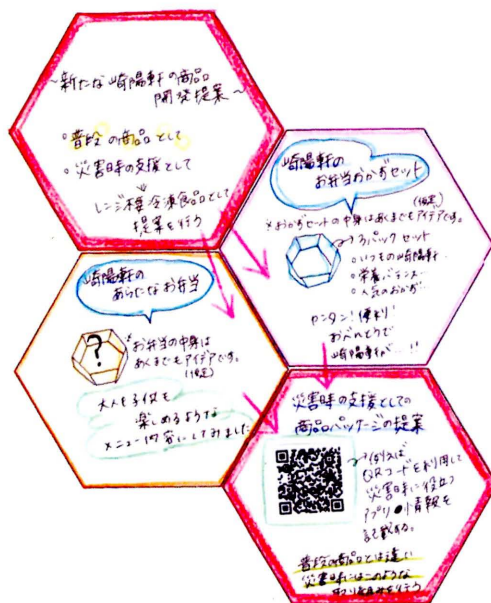 ~新たな崎陽軒の商品
開発提案~
○普段の商品として
○災害時の支援として
レンジ 冷凍食品として
提案を行う
崎陽軒の
お弁当おかずセット
(仮定)
※おかずセットの中身はあくまでもアイデアです。
3パックセット
○いつもの崎陽軒
○栄養バランス…
○人気のおかず…
カンタン!便利!
おべんとうで
崎陽軒が…!!
崎陽軒の
あらたなお弁当
?
※お弁当の中身は
あくまでもアイデアです。
(仮定)
大人も子供も
楽しめるような
メニュー内容にしてみました
災害時の支援としての
商品パッケージの提案
例えば
QRコードを利用して
災害時に役立つ
アプリ 情報を
記載する。
普段の商品とは違い
災害時にはこのような
取り組みを行う